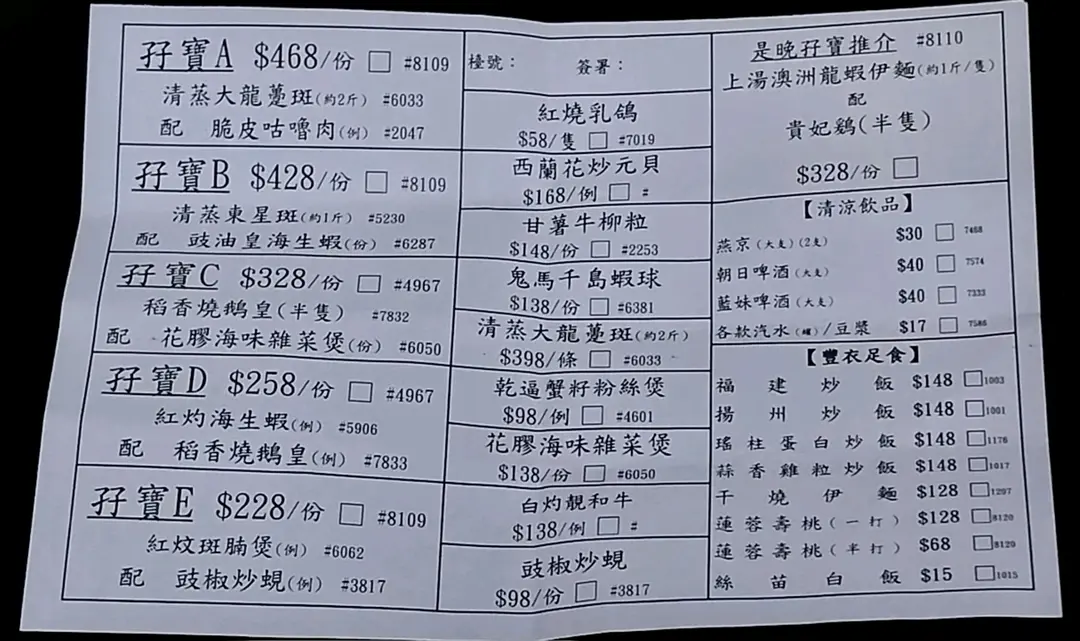 孖寶A $468/份 □ #8109
清蒸大龍躉斑(約2斤) #6033
配 脆皮咕嚕肉(例) #2047
孖寶B $428/份 □ #8109
清蒸東星斑(約1斤) #5230
配 豉油皇海生蝦(份) #6287
孖寶C $328/份 □ #4967
稻香燒鵝皇(半隻) #7832
配 花膠海味雜菜煲(份) #6050
孖寶D $258/份 □ #4967
紅灼海生蝦(例) #5906
配 稻香燒鵝皇(例) #7833
孖寶E $228/份 □ #8109
紅炆斑腩煲(例) #6062
配 豉椒炒蜆(例) #3817
檯號： 簽署：
紅燒乳鴿
$58/隻 □ #7019
西蘭花炒元貝
$168/例 □ #
甘薯牛柳粒
$148/份 □ #2253
鬼馬千島蝦球
$138/份 □ #6381
清蒸大龍躉斑(約2斤)
$398/條 □ #6033
乾逼蟹籽粉絲煲
$98/例 □ #4601
花膠海味雜菜煲
$138/份 □ #6050
白灼靚和牛
$138/例 □ #
豉椒炒蜆
$98/份 □ #3817
是晚孖寶推介 #8110
上湯澳洲龍蝦伊麵(約1斤/隻)
配
貴妃鷄(半隻)
$328/份 □
【清涼飲品】
燕京(大支)(2支) $30 □ 7468
朝日啤酒(大支) $40 □ 7574
藍妹啤酒(大支) $40 □ 7333
各款汽水(罐)/豆漿 $17 □ 7586
【豐衣足食】
福建炒飯 $148 □1003
揚州炒飯 $148 □1001
瑤柱蛋白炒飯 $148 □1176
蒜香雞粒炒飯 $148 □1017
干燒伊麵 $128 □1207
蓮蓉壽桃(一打) $128 □8120
蓮蓉壽桃(半打) $68 □8120
絲苗白飯 $15 □1015